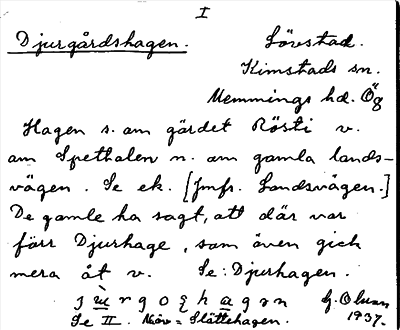 I
Djurgårdshagen. Lövstad.
Kimstads sn.
Memmings hd. Ög
Hagen s. om gärdet Rösti v.
om Spethalen n. om gamla lands-
vägen. Se ek. [Jmfr. Landsvägen.]
De gamle ha sagt, att där var
förr Djurhage, som även gick
mera åt v. Se: Djurhagen.
G. Olsson
Se II. Nuv = Slättehagen. 1937.